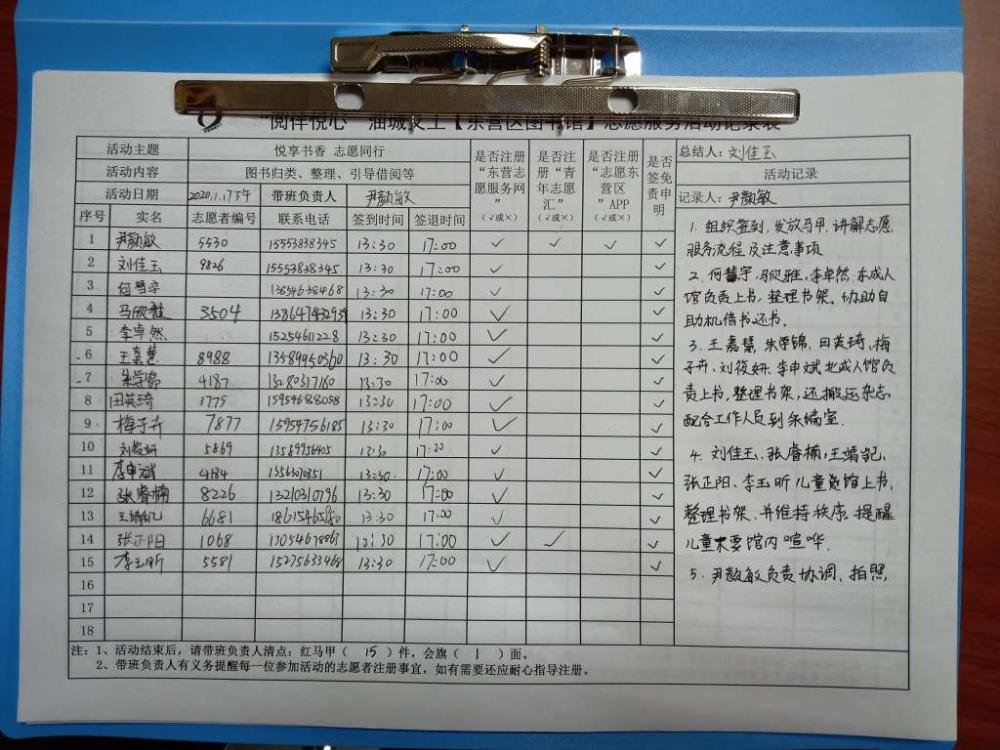 "阅伴悦心" 油城义工【东营区图书馆】志愿服务活动记录表
活动主题 悦享书香 志愿同行
活动内容 图书归类、整理、引导借阅等
活动日期 2020.1.17下午 带班负责人 尹颜敏
是否注册“东营志愿服务网” (√或×) 是否注册“青年志愿汇” (√或×) 是否注册“志愿东营区”APP (√或×) 是否签免责申明
序号 实名 志愿者编号 联系电话 签到时间 签退时间
1 尹颜敏 5530 15553838345 13:30 17:00 √ √ √ √
2 刘佳玉 9826 15553838345 13:30 17:00 √ √
3 何慧宇 13854638468 13:30 17:00 √ √
4 马欣雅 3504 13:30 17:00 √ √
5 李卓然 15254611228 13:30 17:00 √ √
6 王嘉慧 8988 13589950360 13:30 17:00 √ √
7 4187 13:30 17:00 √ √
8 田英琦 1775 15954688058 13:30 17:00 √ √
9 梅子卉 7877 15959756185 13:30 17:00 √ √
10 刘筱妍 5869 13589956405 13:30 17:00 √ √
11 李申斌 4184 13:30 17:00 √ √
12 张睿楠 8226 13210310796 13:30 17:00 √ √
13 6681 13:30 17:00 √ √
14 张正阳 1068 13054678863 13:30 17:00 √ √ √
15 李玉昕 5581 15275633468 13:30 17:00 √ √
16
17
18
注：1、活动结束后，请带班负责人清点：红马甲（ 15 ）件，会旗（ 1 ）面。
2、带班负责人有义务提醒每一位参加活动的志愿者注册事宜，如有需要还应耐心指导注册。
总结人：刘佳玉
活动记录
记录人：尹颜敏
1. 组织签到，发放马甲，讲解志愿
服务流程及注意事项
2. 何慧宇，马欣雅，李卓然，东成人
馆负责上书，整理书架，协助自
助机借书还书。
3. 王嘉慧，田英琦，梅
子卉，刘筱妍，李申斌北成人馆负
责上书，整理书架，还搬运杂志
配合工作人员到采编室.
4. 刘佳玉，张睿楠，
张正阳、李玉昕儿童阅馆上书，
整理书架，并维持秩序，提醒
儿童不要馆内喧哗.
5. 尹颜敏负责协调、拍照，